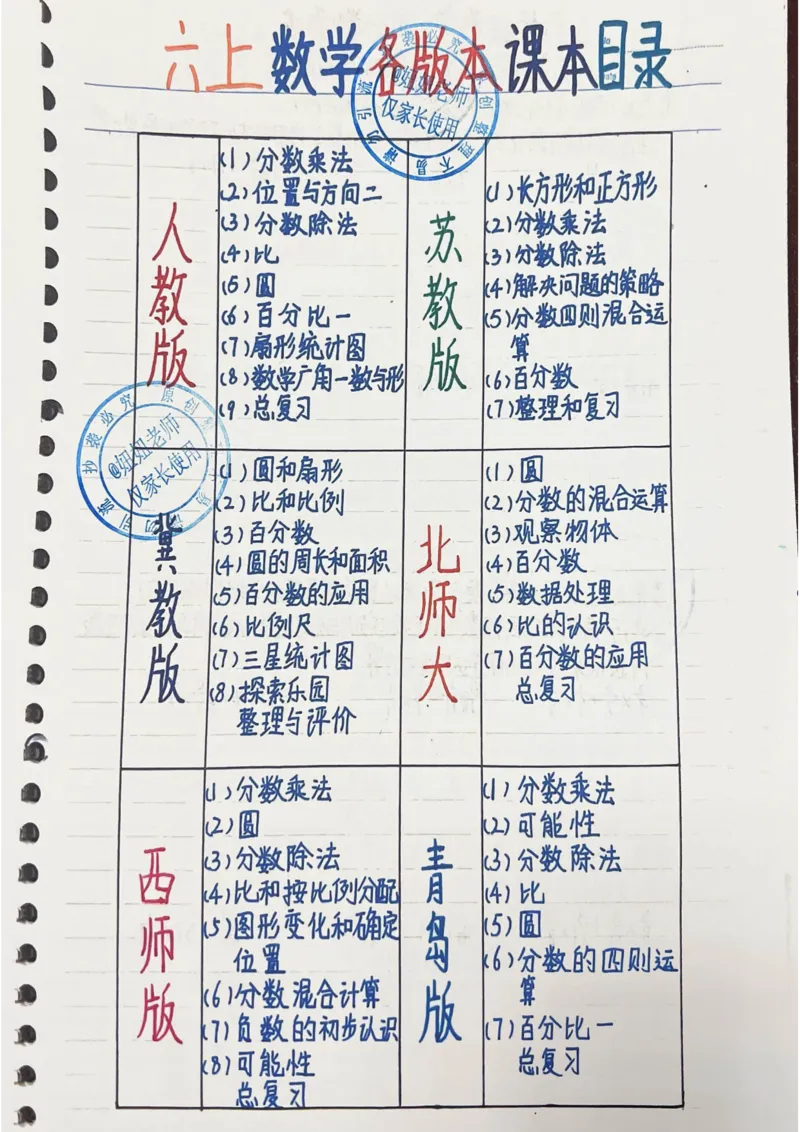 六上数学各版本课本目录
抄袭必究 原创整理不易 请勿引流
@妞妞老师
仅家长使用
人教版
(1)分数乘法
(2)位置与方向二
(3)分数除法
(4)比
(5)圆
(6)百分比一
(7)扇形统计图
(8)数学广角一数与形
(9)总复习
苏教版
(1)长方形和正方形
(2)分数乘法
(3)分数除法
(4)解决问题的策略
(5)分数四则混合运
算
(6)百分数
(7)整理和复习
抄袭必究 原创
@妞妞老师
仅家长使用
冀教版
(1)圆和扇形
(2)比和比例
(3)百分数
(4)圆的周长和面积
(5)百分数的应用
(6)比例尺
(7)三星统计图
(8)探索乐园
整理与评价
北师大
(1)圆
(2)分数的混合运算
(3)观察物体
(4)百分数
(5)数据处理
(6)比的认识
(7)百分数的应用
总复习
西师版
(1)分数乘法
(2)圆
(3)分数除法
(4)比和按比例分配
(5)图形变化和确定
位置
(6)分数混合计算
(7)负数的初步认识
(8)可能性
总复习
青岛版
(1)分数乘法
(2)可能性
(3)分数除法
(4)比
(5)圆
(6)分数的四则运
算
(7)百分比一
总复习